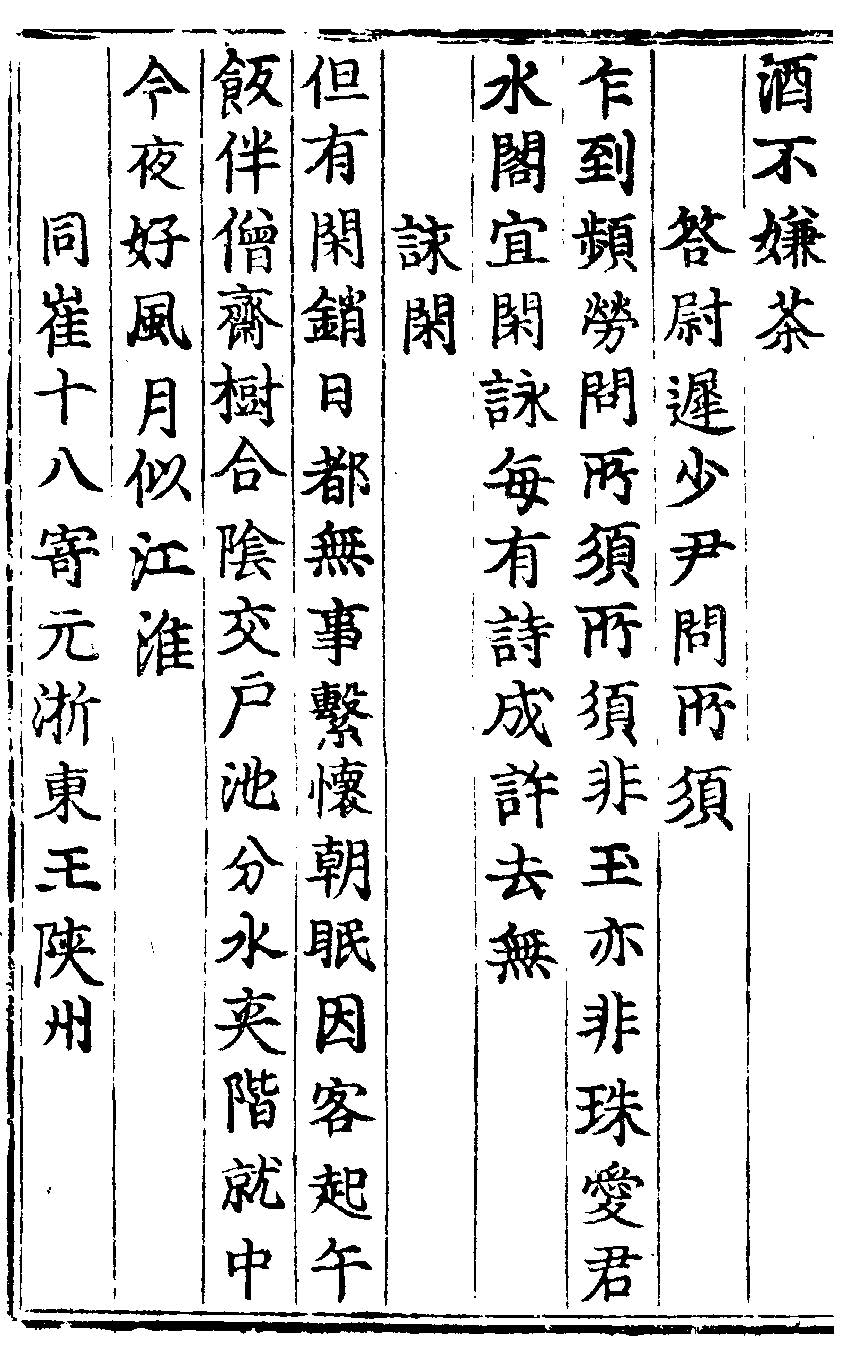 酒不嫌茶
答尉遲少尹問所須
乍到頻勞問所須所須非玉亦非珠愛君
水閣宜閑詠每有詩成許去無
詠閑
但有閑銷日都無事繫懷朝眠因客起午
飯伴僧齋樹合陰交戶池分水夾階就中
今夜好風月似江淮
同崔十八寄元浙東王陝州